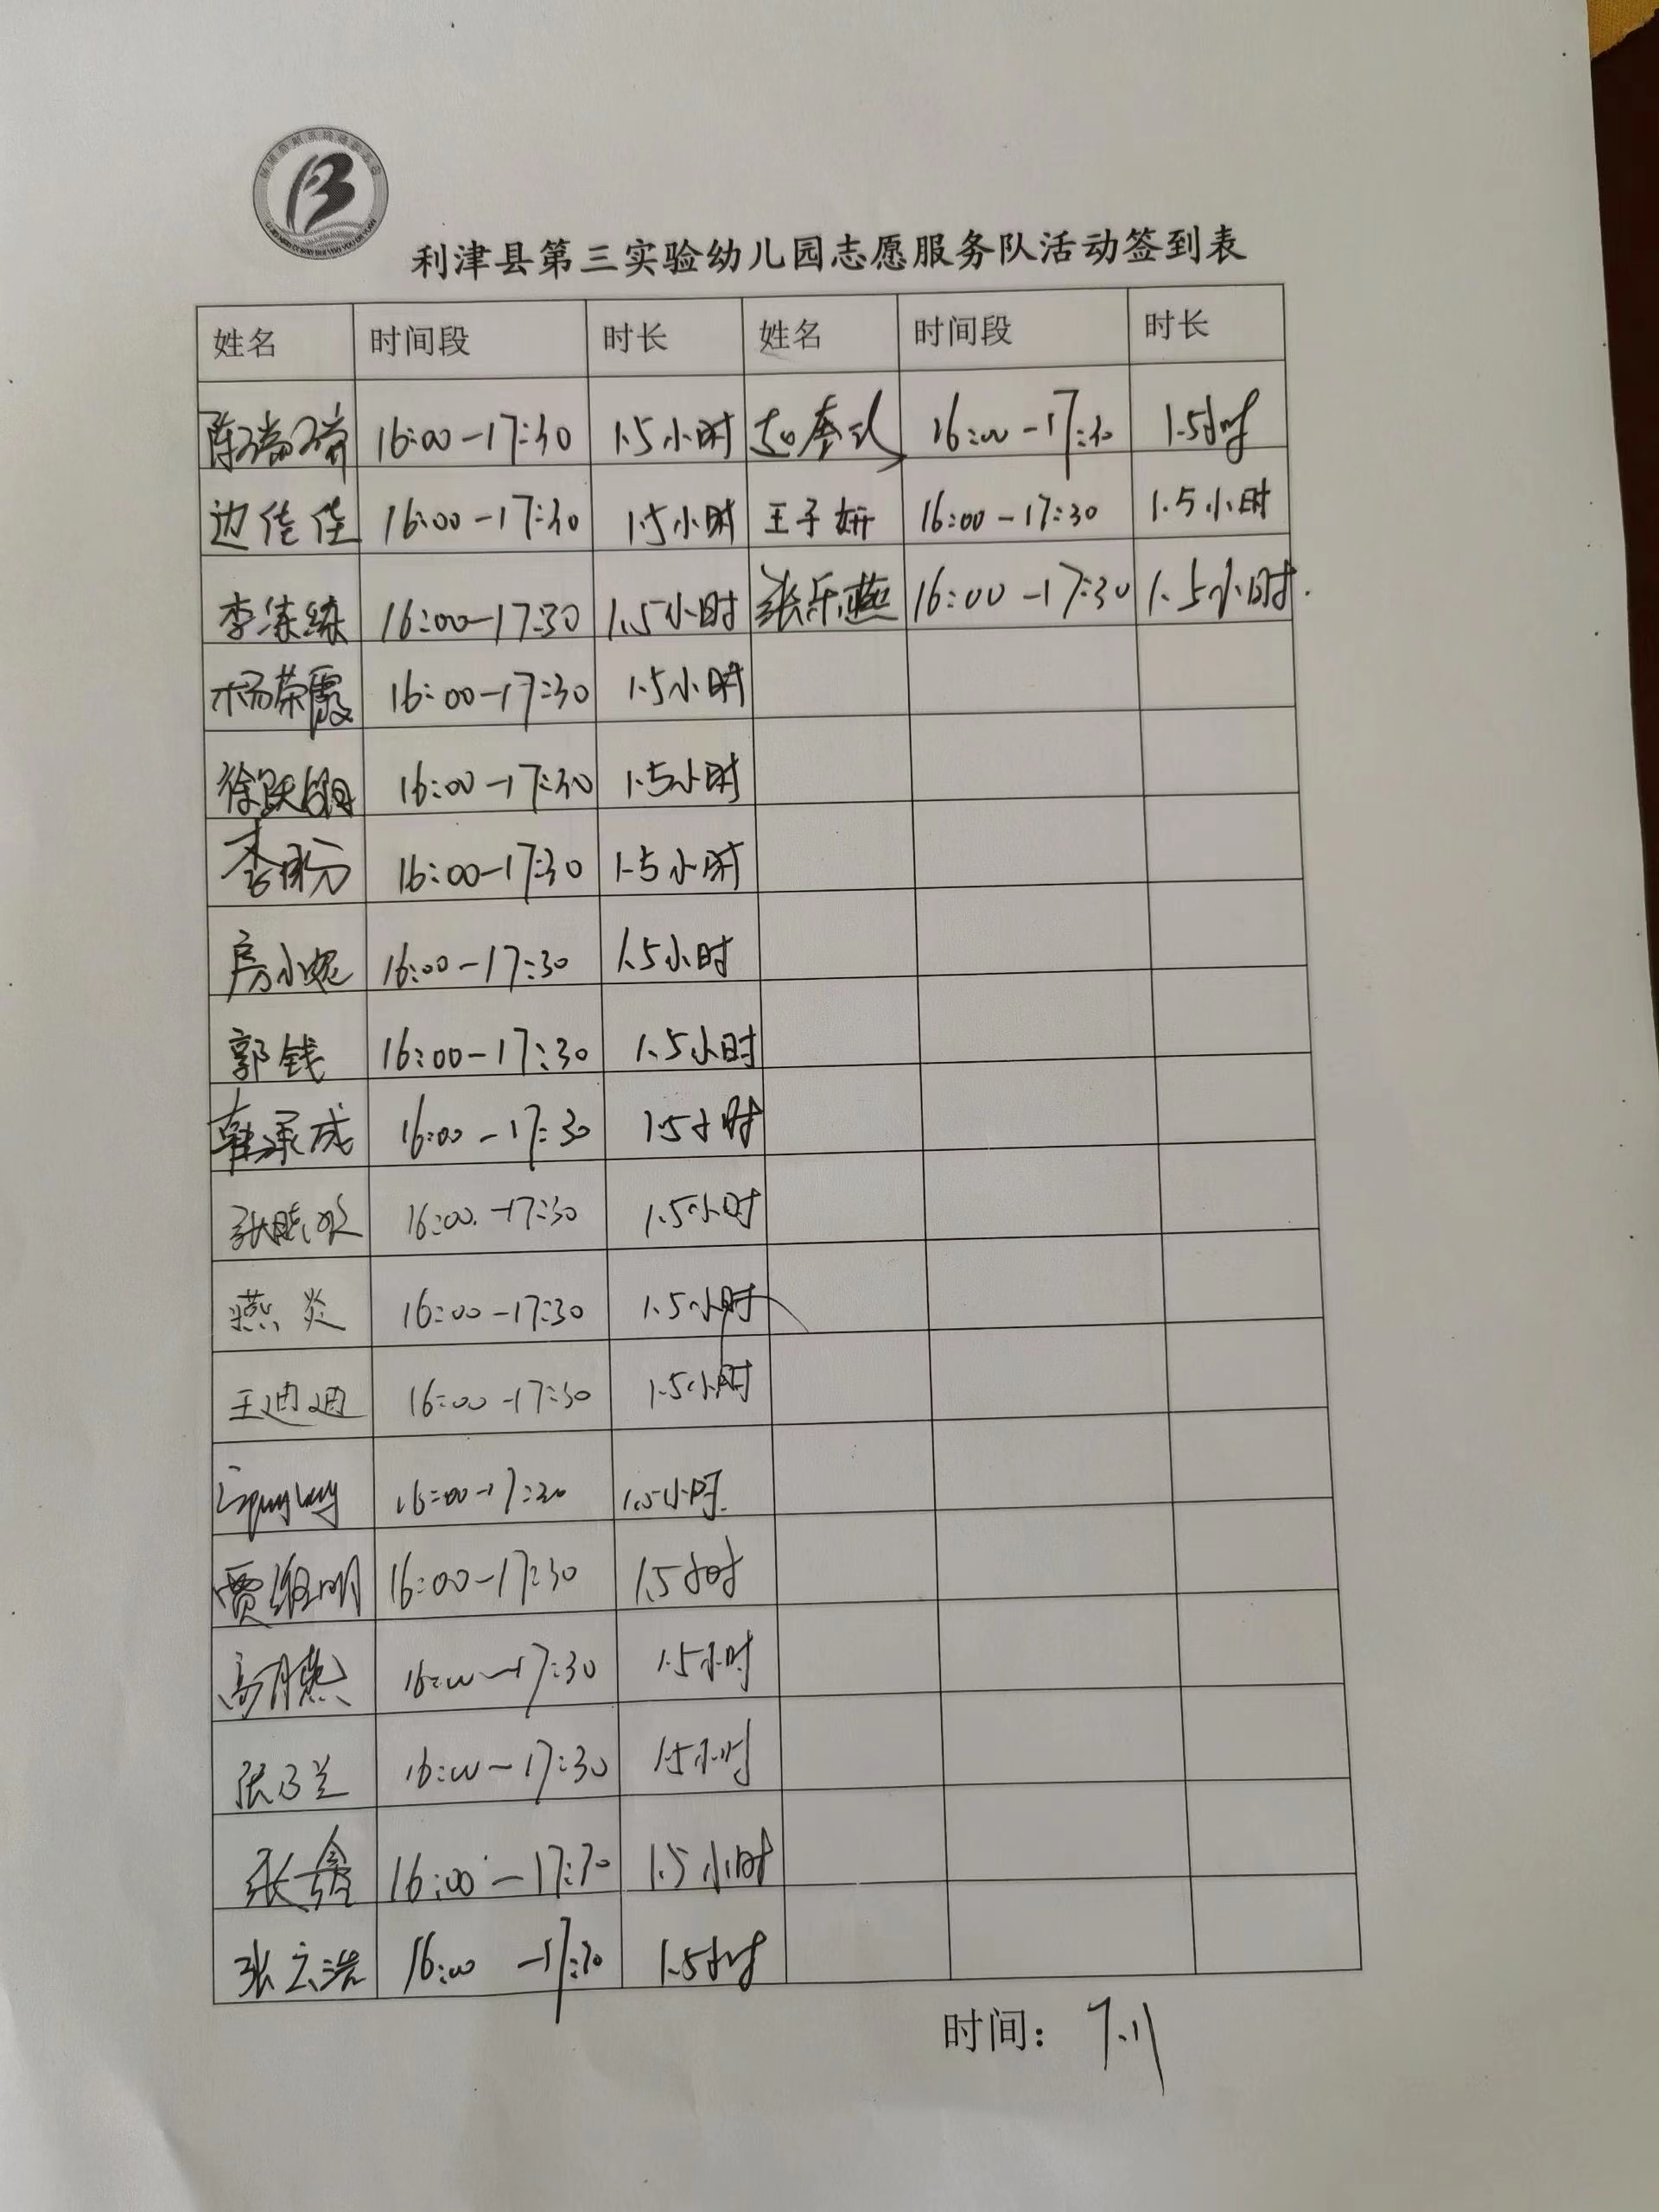 利津县第三实验幼儿园志愿服务队活动签到表
姓名 时间段 时长 姓名 时间段 时长
陈瑞瑞 16:00-17:30 1.5小时 16:00-17:30 1.5小时
边佳佳 16:00-17:30 1.5小时 王子妍 16:00-17:30 1.5小时
李练练 16:00-17:30 1.5小时 张乐燕 16:00-17:30 1.5小时.
杨荣霞 16:00-17:30 1.5小时
徐跃娟 16:00-17:30 1.5小时
李盼 16:00-17:30 1.5小时
房小妮 16:00-17:30 1.5小时
郭钱 16:00-17:30 1.5小时
韩承成 16:00-17:30 1.5小时
16:00-17:30 1.5小时
燕炎 16:00-17:30 1.5小时
王迪迪 16:00-17:30 1.5小时
16:00-17:30 1.5小时
贾维明 16:00-17:30 1.5小时
高月燕 16:00-17:30 1.5小时
16:00-17:30 1.5小时
张鑫 16:00-17:30 1.5小时
张云浩 16:00-17:30 1.5小时
时间: 7.11